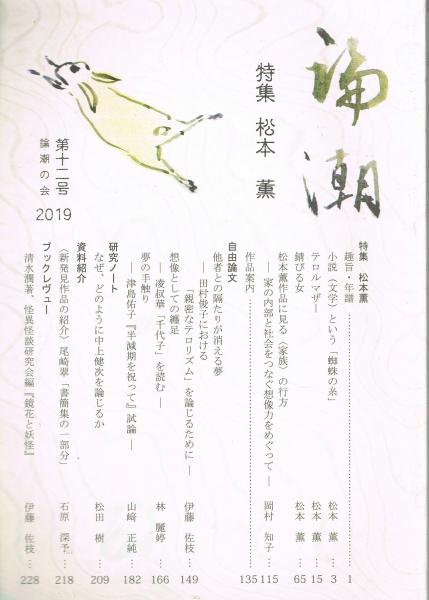 論潮
特集 松本 薫
第十二号
論潮の会
2019
特集 松本薫
趣旨・年譜 1
小説〈文学〉という「蜘蛛の糸」 松本 薫… 3
テロルマザー 松本 薫… 15
錆びる女 松本 薫… 65
松本薫作品に見る〈家族〉の行方
― 家の内部と社会をつなぐ想像力をめぐって ― 岡村 知子… 115
作品案内 135
自由論文
他者との隔たりが消える夢
― 田村俊子における
「親密なテロリズム」を論じるために ― 伊藤 佐枝… 149
想像としての纏足
― 凌叔華「千代子」を読む ― 林 麗婷… 166
夢の手触り
― 津島佑子『半減期を祝って』試論 ― 山﨑 正純… 182
研究ノート
なぜ、どのように中上健次を論じるか 松田 樹… 209
資料紹介
〈新発見作品の紹介〉尾崎翠「書簡集の一部分」 石原 深予… 218
ブックレヴュー
清水潤著、怪異怪談研究会編『鏡花と妖怪』 伊藤 佐枝… 228